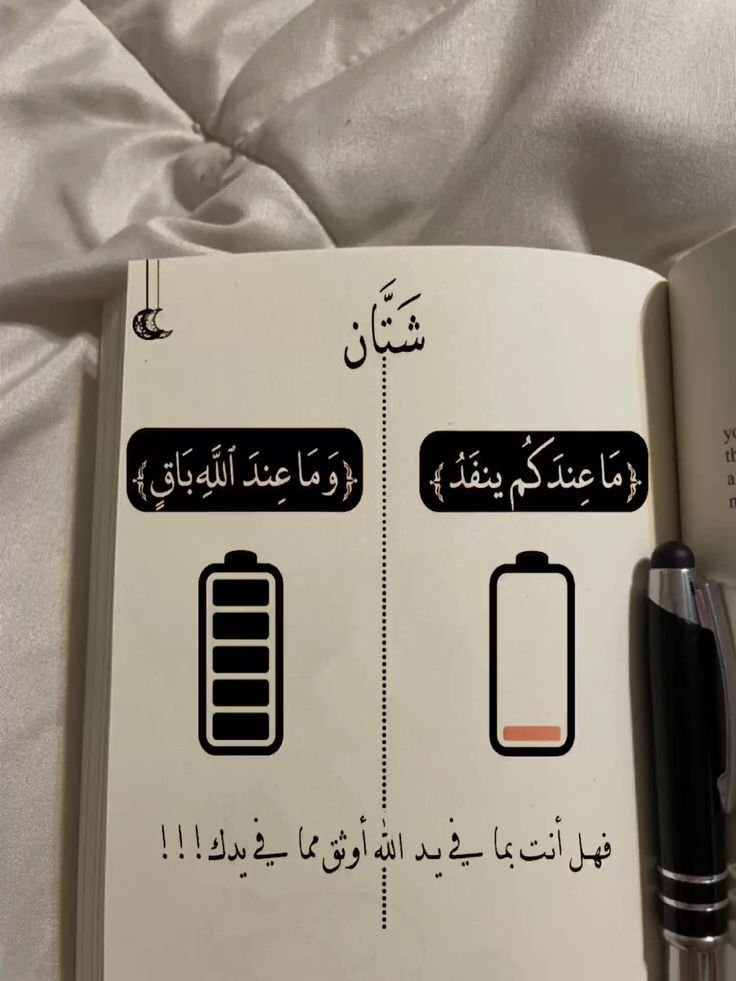 شَتَّان
﴿مَا عِندَكُم ينفَدُ﴾
﴿وَمَا عِندَ ٱللَّهِ بَاقٍ﴾
فهل أنت بما في يد الله أوثق مما في يدك!!!